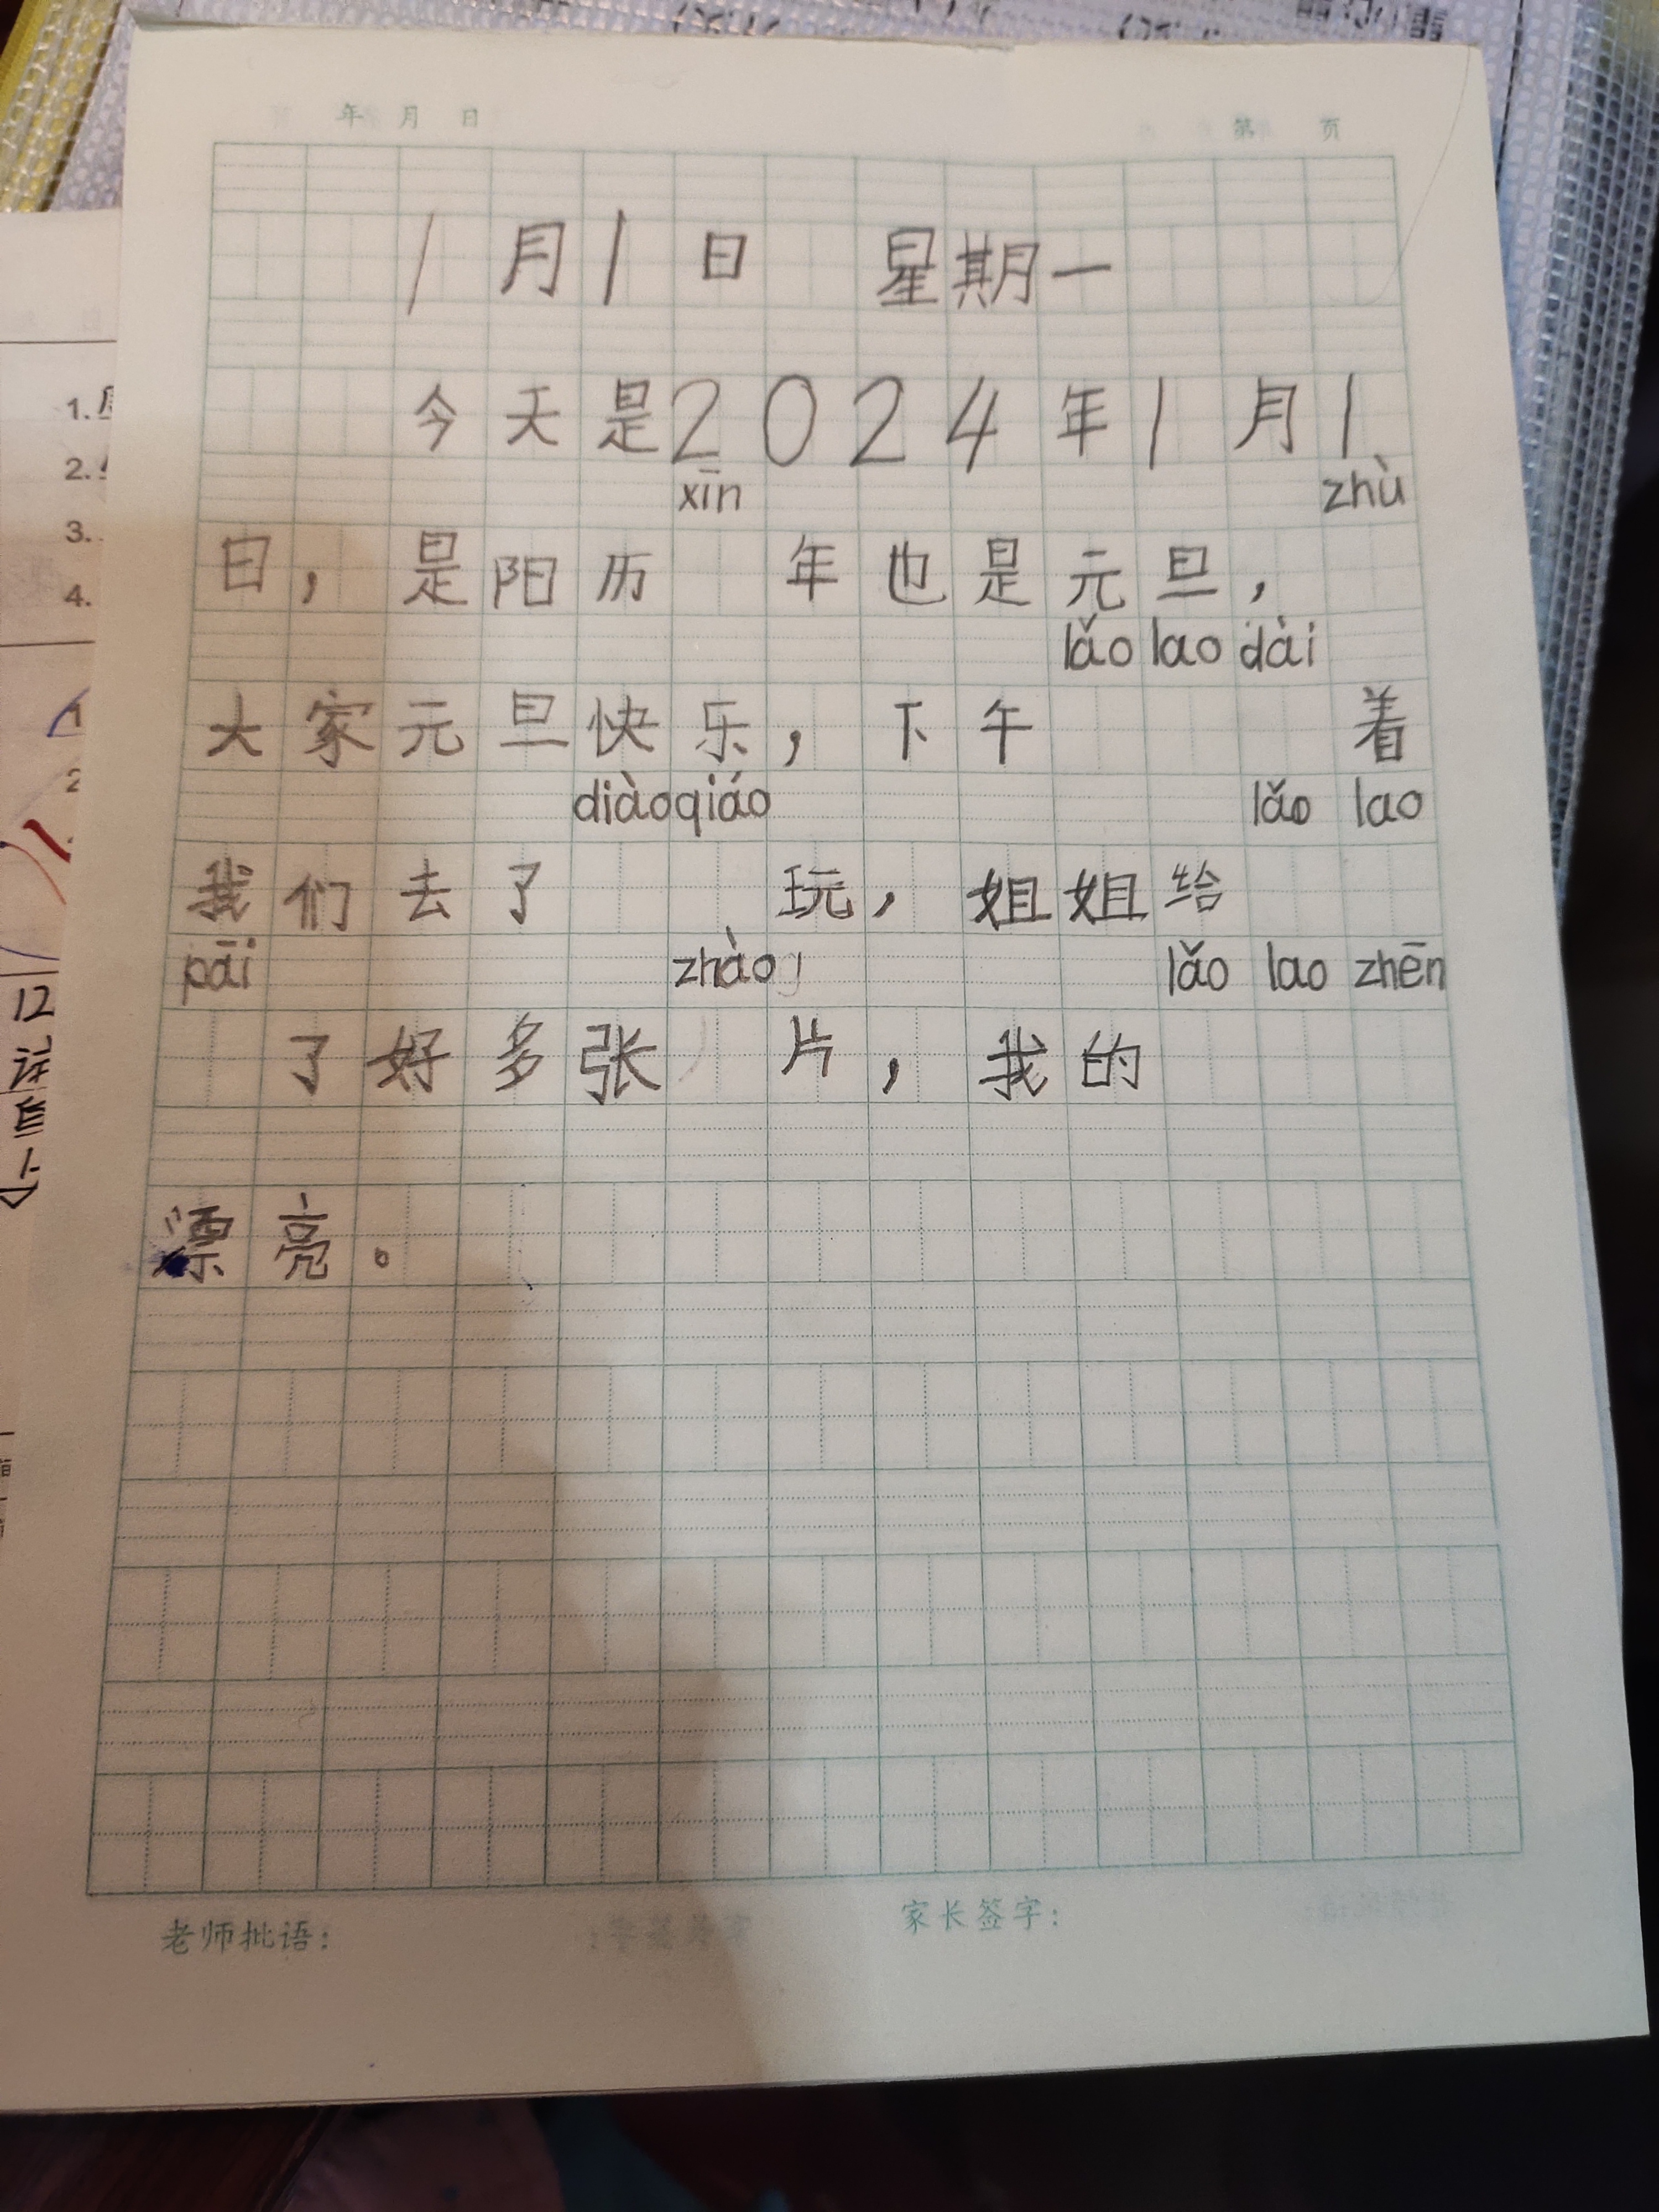 年 月 日 第 页
1月1日 星期一
今天是2024年1月1
xīn zhù
日，是阳历 年也是元旦，
lǎo lao dài
大家元旦快乐，下午 着
diào qiáo lǎo lao
我们去了 玩，姐姐给
pāi zhào lǎo lao zhēn
了好多张 片，我的
漂亮。
老师批语： 家长签字：
1.
2.
3.
4.
12